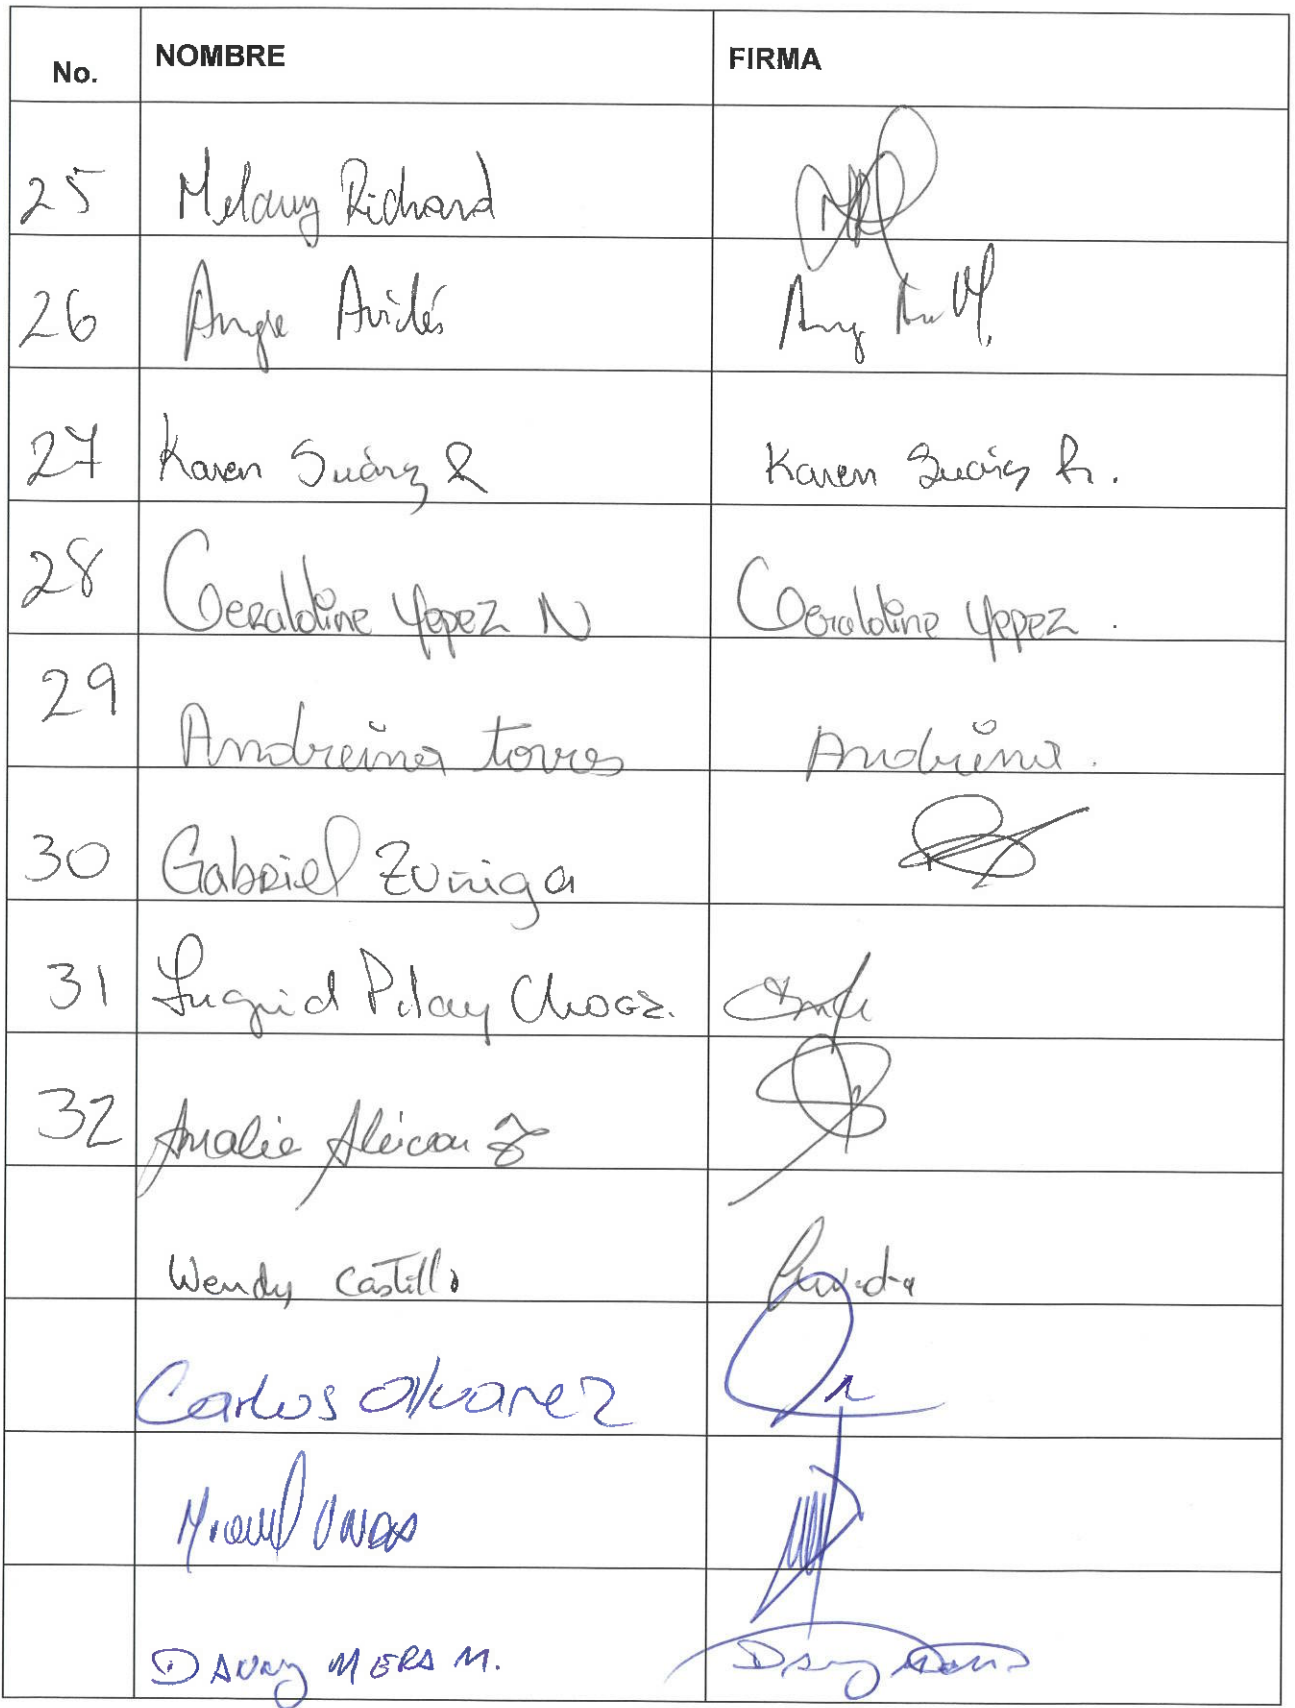 No. NOMBRE FIRMA
25 Melany Richard
26 Angie Avilés
27 Karen Suárez R Karen Suárez R.
28 Geraldine Yepez N Geraldine Yepez.
29 Andreina Torres Andreina.
30 Gabriel Zuñiga
31 Ingrid Pilay Chogz.
32 Amalia
Wendy Castillo
Carlos Alvarez
Miguel
DANNY MERA M. Danny